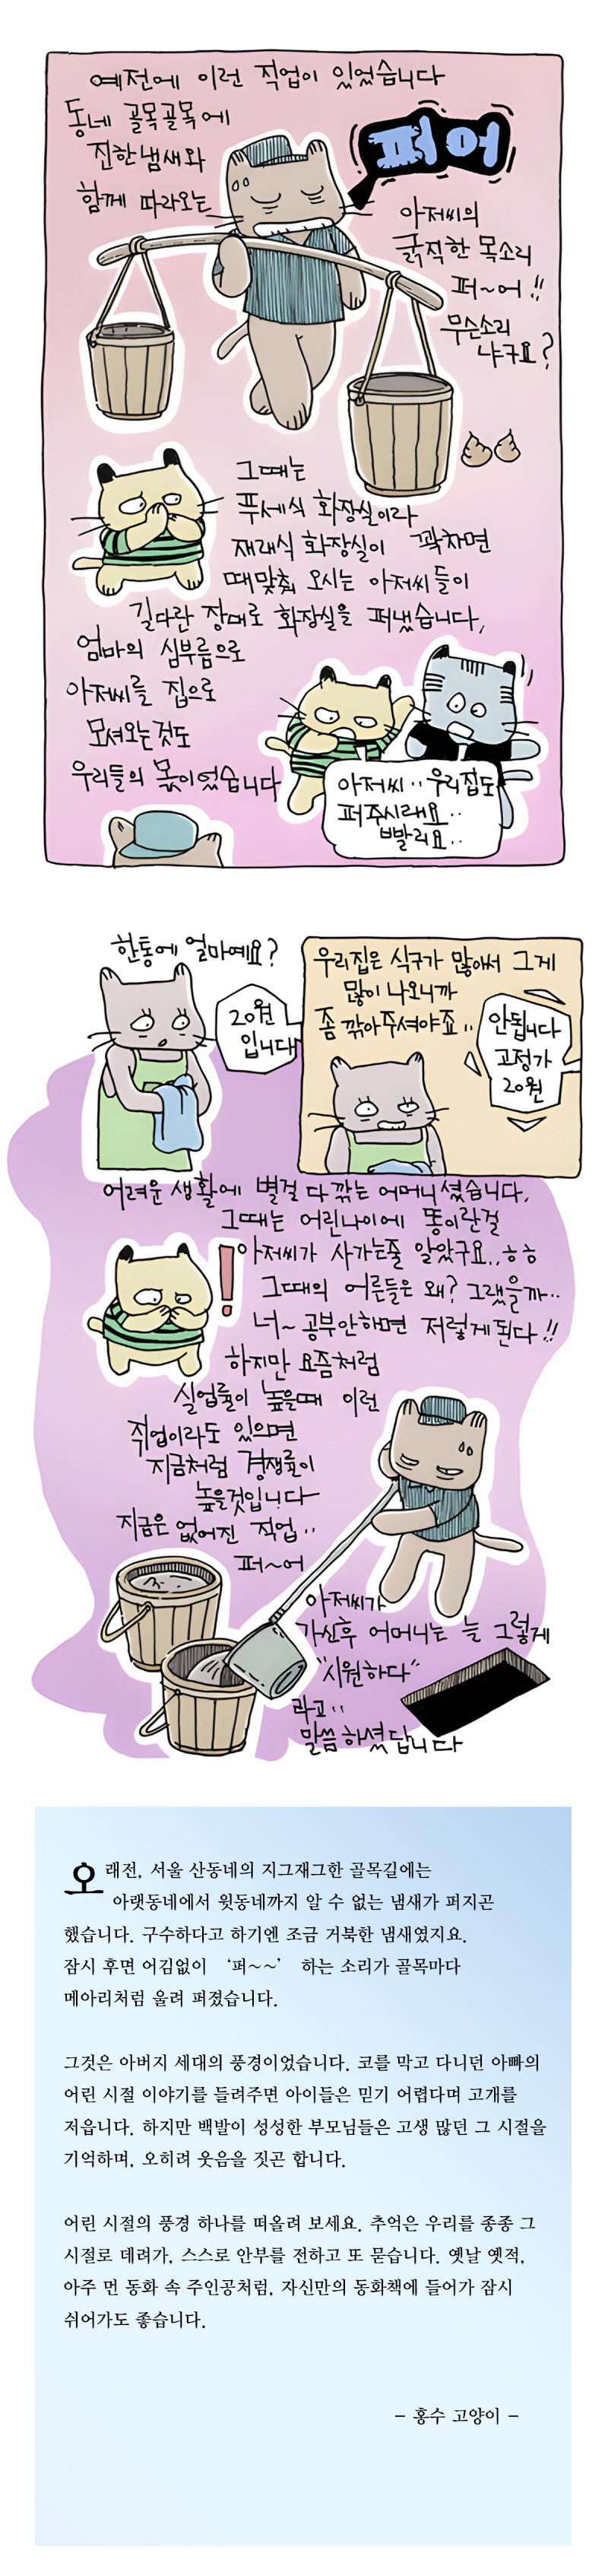 예전에 이런 직업이 있었습니다
동네 골목골목에
진한냄새와
함께 따라오는
퍼어
아저씨의
굵직한 목소리
퍼~어!!
무슨소리
냐구요?
그때는
푸세식 화장실이라
재래식 화장실이 꽉차면
때맞춰 오시는 아저씨들이
길다란 장대로 화장실을 퍼냈습니다.
엄마의 심부름으로
아저씨를 집으로
모셔오는것도
우리들의 몫이었습니다
아저씨..우리집도
퍼주시래요..
빨리요..
한통에 얼마예요?
20원
입니다
우리집은 식구가 많아서 그게
많이 나오니까
좀 깎아주셔야죠..
안됩니다
고정가
20원
어려운 생활에 별걸 다 깎는 어머니셨습니다.
그때는 어린나이에 똥이란걸
아저씨가 사가는줄 알았구요..ㅎㅎ
그때의 어른들은 왜? 그랬을까..
너~ 공부안하면 저렇게된다!!
하지만 요즘처럼
실업률이 높을때 이런
직업이라도 있으면
지금처럼 경쟁률이
높을것입니다
지금은 없어진 직업..
퍼~어
아저씨가
가신후 어머니는 늘 그렇게
"시원하다"
라고..
말씀하셨답니다
오래전, 서울 산동네의 지그재그한 골목길에는
아랫동네에서 윗동네까지 알 수 없는 냄새가 퍼지곤
했습니다. 구수하다고 하기엔 조금 거북한 냄새였지요.
잠시 후면 어김없이 ‘퍼~~’ 하는 소리가 골목마다
메아리처럼 울려 퍼졌습니다.
그것은 아버지 세대의 풍경이었습니다. 코를 막고 다니던 아빠의
어린 시절 이야기를 들려주면 아이들은 믿기 어렵다며 고개를
저읍니다. 하지만 백발이 성성한 부모님들은 고생 많던 그 시절을
기억하며, 오히려 웃음을 짓곤 합니다.
어린 시절의 풍경 하나를 떠올려 보세요. 추억은 우리를 종종 그
시절로 데려가, 스스로 안부를 전하고 또 묻습니다. 옛날 옛적,
아주 먼 동화 속 주인공처럼, 자신만의 동화책에 들어가 잠시
쉬어가도 좋습니다.
– 홍수 고양이 –